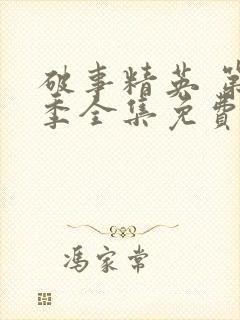 破事精英 第
季全集免费
冯家常